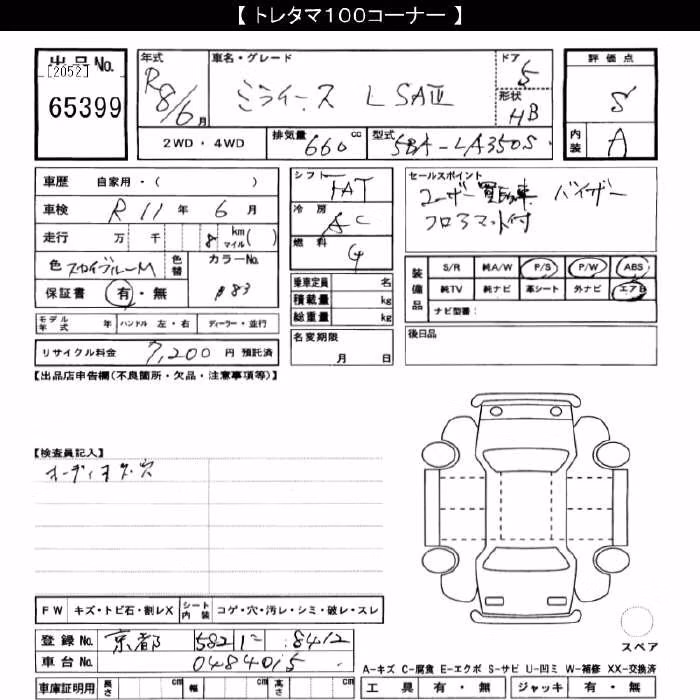 【 トレタマ100コーナー 】
出品No.
[2052]
65399
年式
R8/6月
車名・グレード
ミライース L SAⅢ
ドア
5
形状
HB
評価点
S
内装
A
2WD・4WD
排気量
660cc
型式
5BA-LA350S
車歴 自家用・( )
車検 R11年 6月
走行 万 千 8 km マイル ( )
色 スカイブルーM 色替
カラーNo.
B83
保証書 有・無
モデル年式 年 ハンドル 左・右 ディーラー・並行
リサイクル料金 7,200 円 預託済
シフト
IAT
冷房
AC
燃料
G
乗車定員 名
積載量 kg
総重量 kg
名変期限
月 日
セールスポイント
ユーザー買取車 バイザー
フロアマット付
装備品
S/R 純A/W P/S P/W ABS
純TV 純ナビ 革シート 外ナビ エアB
ナビ型番:
後日品
【出品店申告欄(不良箇所・欠品・注意事項等)】
【検査員記入】
オーディオレス・穴
FW キズ・トビ石・割レX シート内装 コゲ・穴・汚レ・シミ・破レ・スレ
登録No. 京都 582 に 8412
車台No. 0484015
車庫証明用 長さ cm 幅 cm 高さ cm
スペア
A-キズ C-腐食 E-エクボ S-サビ U-凹ミ W-補修 XX-交換済
工具 有・無 ジャッキ 有・無